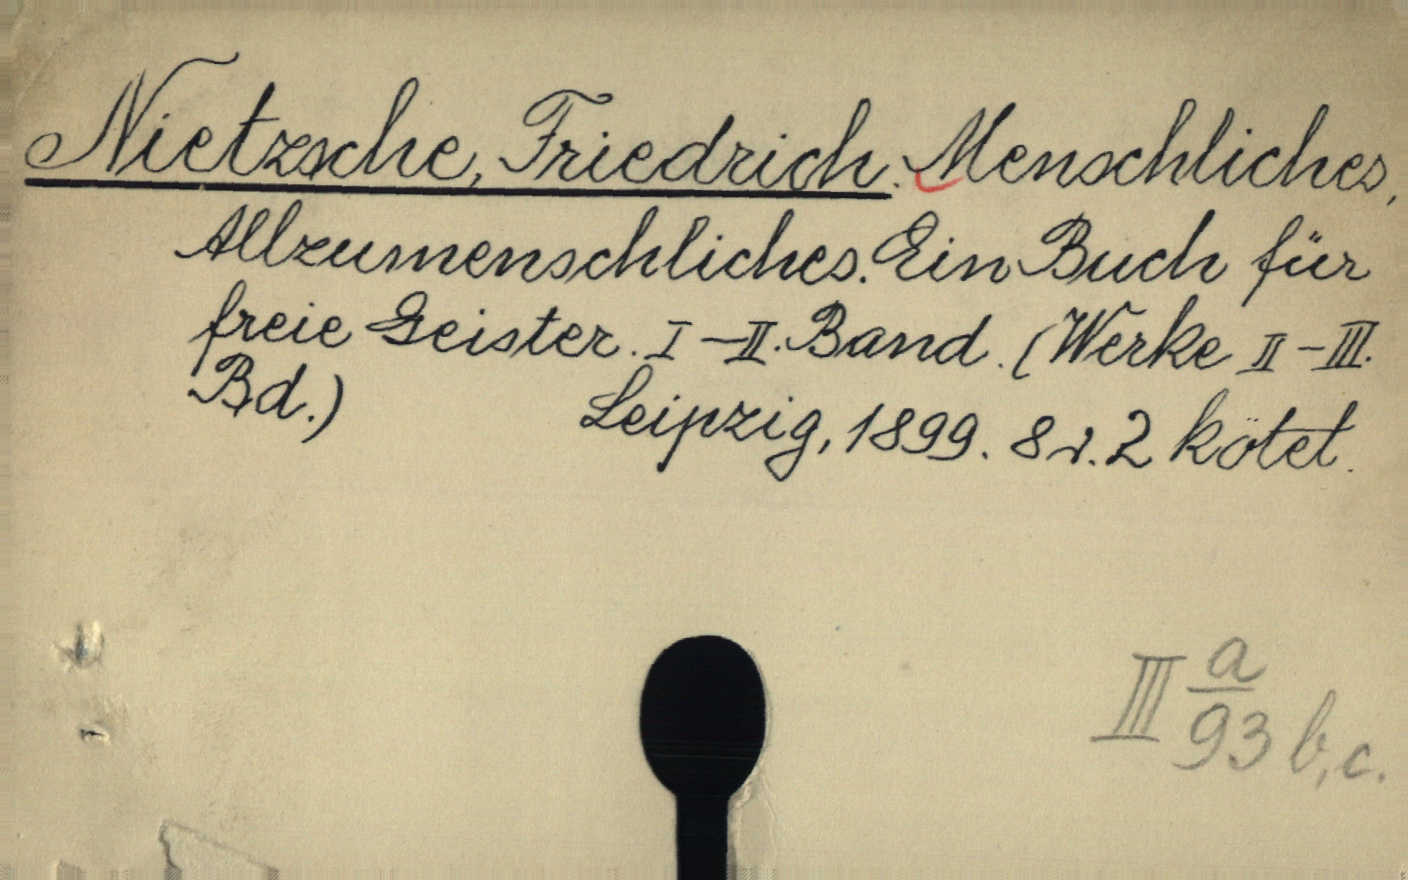 Nietzsche, Friedrich. Menschliches,
Allzumenschliches. Ein Buch für
freie Geister. I-II. Band. (Werke II-III.
Bd.) Leipzig, 1899. 8r. 2 kötet.
III a/93 b, c.